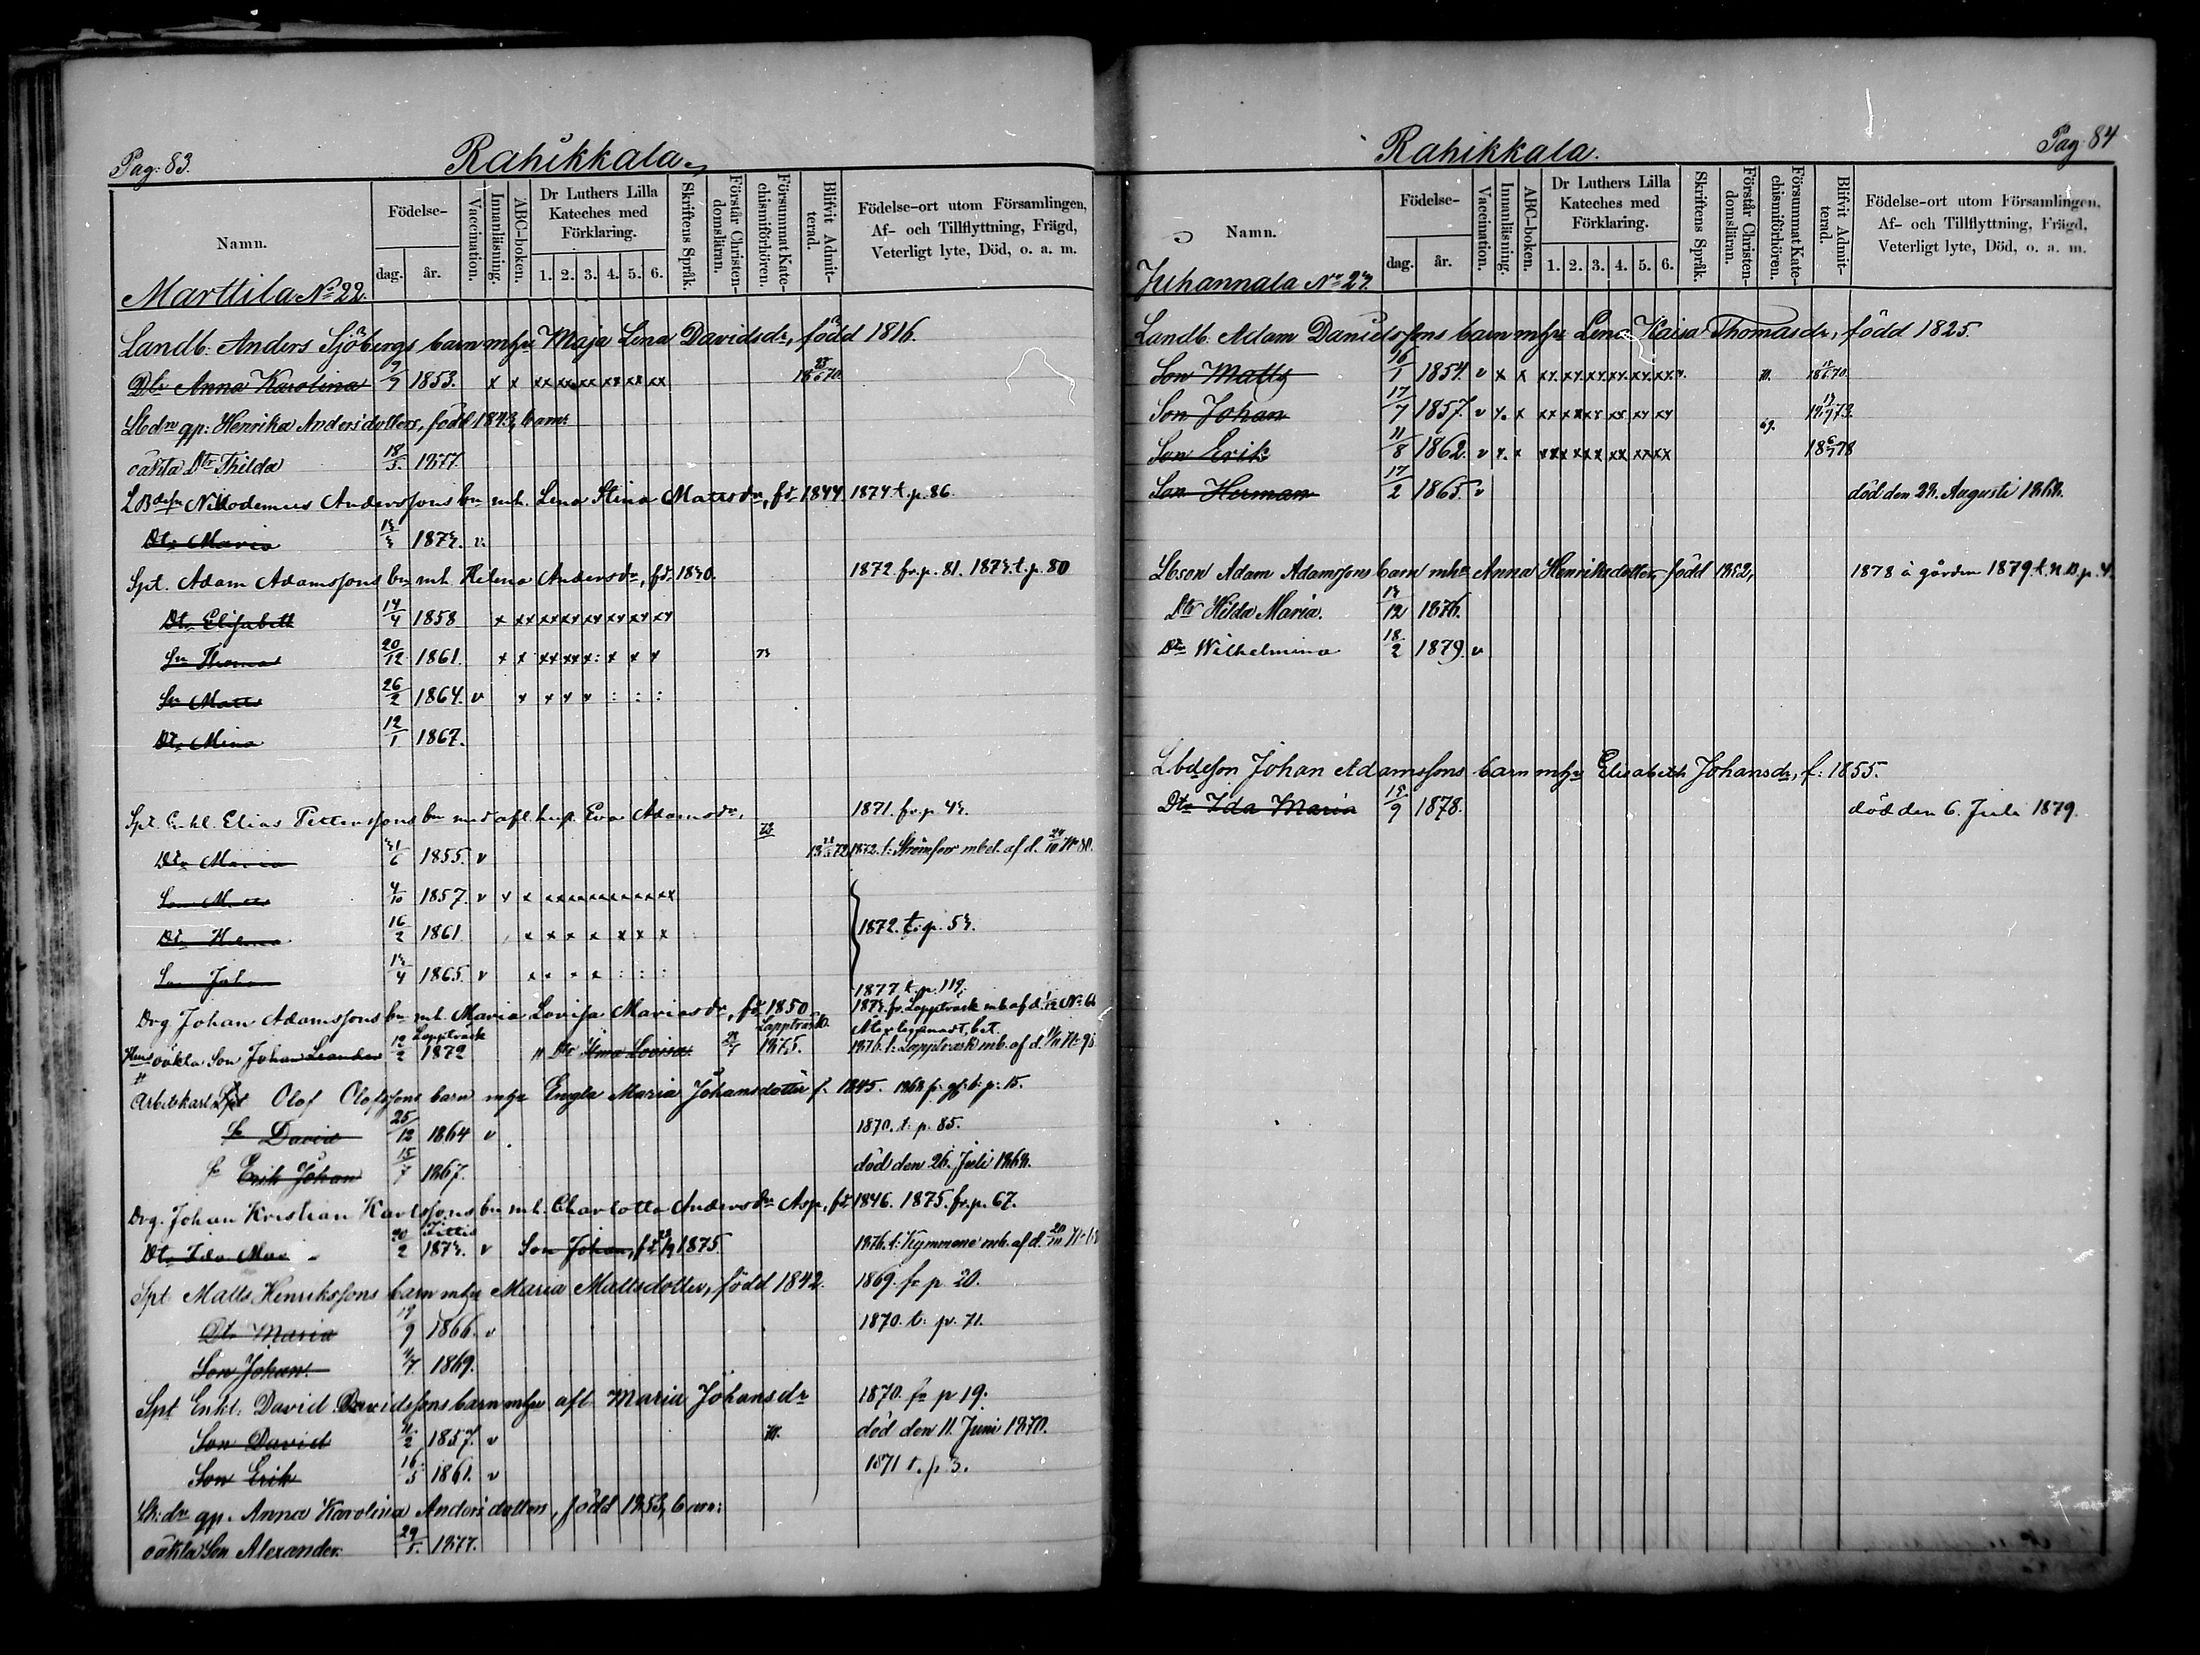 Pag: 83.
Rahikkala
Namn.
Födelse-
dag.
år.
Vaccination.
Innanläsning.
ABC-boken.
Dr Luthers Lilla
Kateches med
Förklaring.
1. 2. 3. 4. 5. 6.
Skriftens Språk.
Förstår Christen-
domsläran.
Försummat Kate-
chismiförhören.
Blifvit Admit-
terad.
Födelse-ort utom Församlingen,
Af- och Tillflyttning, Frägd,
Veterligt lyte, Död, o. a. m.
Marttila No 22.
Landb: Anders Sjöbergs barn mhu Maja Lena Davidsdr, född 1816.
Dtr Anna Karolina 9/9 1853. x x xx xx xx xx xx xx
Lbdr gp: Henrika Andersdotters, född 1843, barn:
oäkta Dtr Thilda 18/5 1877.
Nikodemus Anderssons bn mh. Lena Stina Mattsdr, fd 1844 1874 t. p. 86.
Dtr Maria 1873. v.
Spt. Adam Adamssons bn mh Helena Andersdr, fd. 1830. 1872 fr. p. 81. 1873. t. p. 80
Dtr Elisabett 14/4 1858 x xx xx xx xx xx xx xx
Sn Thomas 20/12 1861. 73
Sn Matts 26/2 1864. v x x x x : : :
Dtr Mina 12/1 1867.
Spt. Enkl. Elias Petterssons bn med afl. hu. Eva Adamsdr, 1871. fr. p. 43.
Dtr Maria 1855. v 73 1872. t. Strömfors mbd. af d. 24/10 No 80.
Son 4/10 1857. v x x xx xx xx xx xx xx
Dtr 16/2 1861 x x x x x x x 1872. t. p. 53.
Son 13/4 1865. v x x x x : : :
1877 t. p. 119.
Drg Johan Adamssons bn mh. Maria Lovisa Mariasdr, fd. 1850 1873. fr. Lappträsk mb af d.
Lappträsk Lappträsk
oäkta Son Johan Leander 12/2 1872 " Dtr Lovisa 1875. 1876. t. Lappträsk mb. af d.
Arbetskarl Olof Olofssons barn mhu Engla Maria Johansdotter f. 1845.
Sn David 25/12 1864 v 1870. t. p. 85.
Sn Erik Johan 15/7 1867. död den 26. Juli 1868.
Drg. Johan Kristian Karlssons bn mh. Charlotta Andersdr Asp, fd 1846. 1875. fr. p. 67.
Pittis
Dtr Ida 20/2 1873. v Son Johan, fd 1875 1876. t. Kymmene mb. af d.
Spt Matts Henrikssons barn mhu Maria Mattsdotter, född 1842. 1869. fr p. 20.
Dtr Maria 19/9 1866. v 1870. t. p. 71.
Son Johan. 1869.
Spt Enkl. David Davidssons barn mhu afl Maria Johansdr 1870. fr p 19.
Son David 1857. v död den 11. Juni 1870.
Son Erik 16/5 1861. v 1871 t. p. 3.
gp. Anna Karolina Andersdotters, född 1853, barn:
oäkta Son Alexander. 1877.
Pag: 84
Rahikkala.
Namn.
Födelse-
dag.
år.
Vaccination.
Innanläsning.
ABC-boken.
Dr Luthers Lilla
Kateches med
Förklaring.
1. 2. 3. 4. 5. 6.
Skriftens Språk.
Förstår Christen-
domsläran.
Försummat Kate-
chismiförhören.
Blifvit Admit-
terad.
Födelse-ort utom Församlingen,
Af- och Tillflyttning, Frägd,
Veterligt lyte, Död, o. a. m.
Juhannala No 23
Landb. Adam Danielssons barn mhu Lena Kaisa Thomasdr, född 1825.
Son Matts 16/1 1854. v x x xx xx xx xx xx xx
Son Johan 17/7 1857. v x x xx xx xx xx xx xx
Son Erik 11/8 1862. v x x xx xx xx xx xx xx 69.
Son Herman 17/2 1865. v död den 28. Augusti 1868.
Lbson Adam Adamssons barn mhu Anna Henriksdotter, född 1852, 1878 å gården
Dtr Hilda Maria. 13/12 1876.
Dtr Wilhelmina 18/2 1879. v
Lbdeson Johan Adamssons barn mhu Elisabeth Johansdr, f: 1855.
Dtr Ida Maria 15/9 1878. död den 6. Juli 1879.